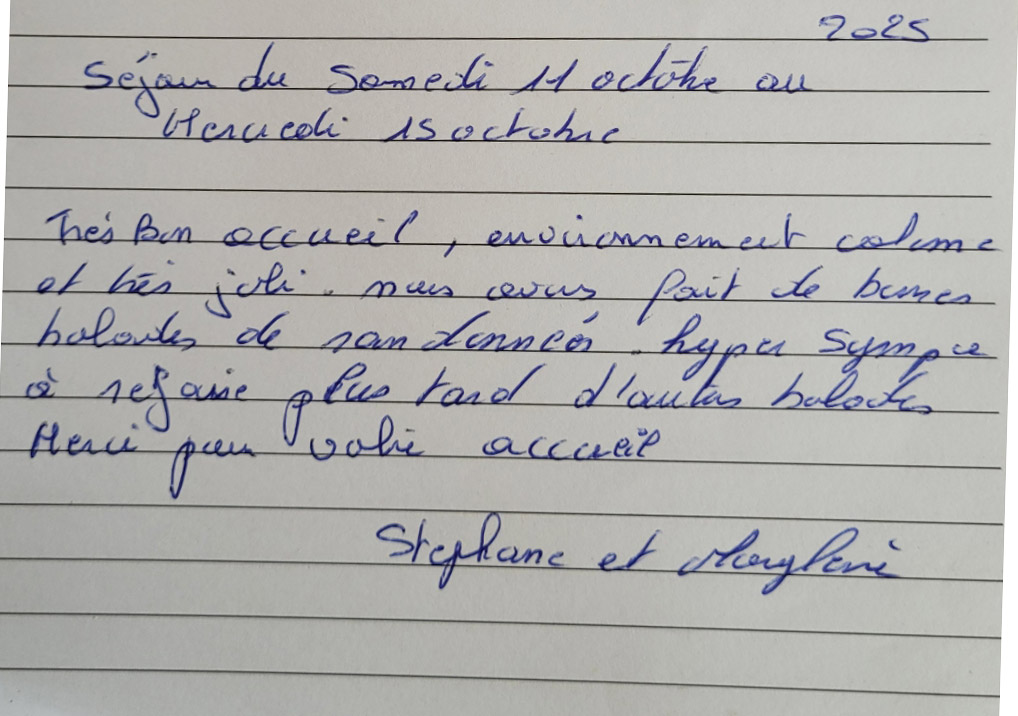 2025
Séjour du Samedi 11 octobre au
Mercredi 15 octobre
Très Bon accueil, environnement calme
et très joli. nous avons fait de bonnes
balades de randonnées. hyper Sympa
à refaire plus tard d'autres balades
Merci pour votre accueil
Stephane et